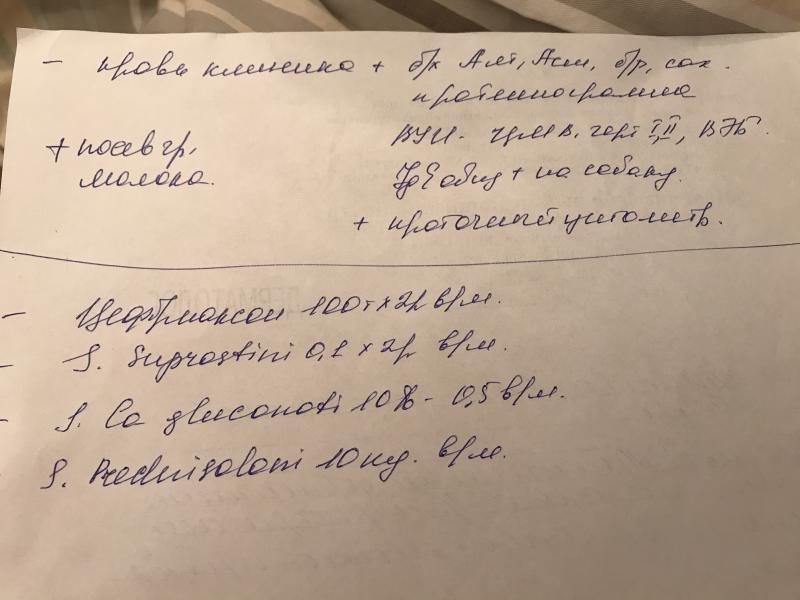 - кровь клиника + б/х Алт, Аст, б/р, сах.
протеинограмма
+ посев гр.
молока.
ВУИ - цмв, герп I, II, ВЭБ.
Ig E общ + на собаку.
+ проточный цитометр.
- Цефтриаксон 100т x 2р в/м.
- S. Suprastini 0,1 x 2р в/м.
- S. Ca gluconati 10% - 0,5 в/м.
S. Prednisoloni 10 мg. в/м.